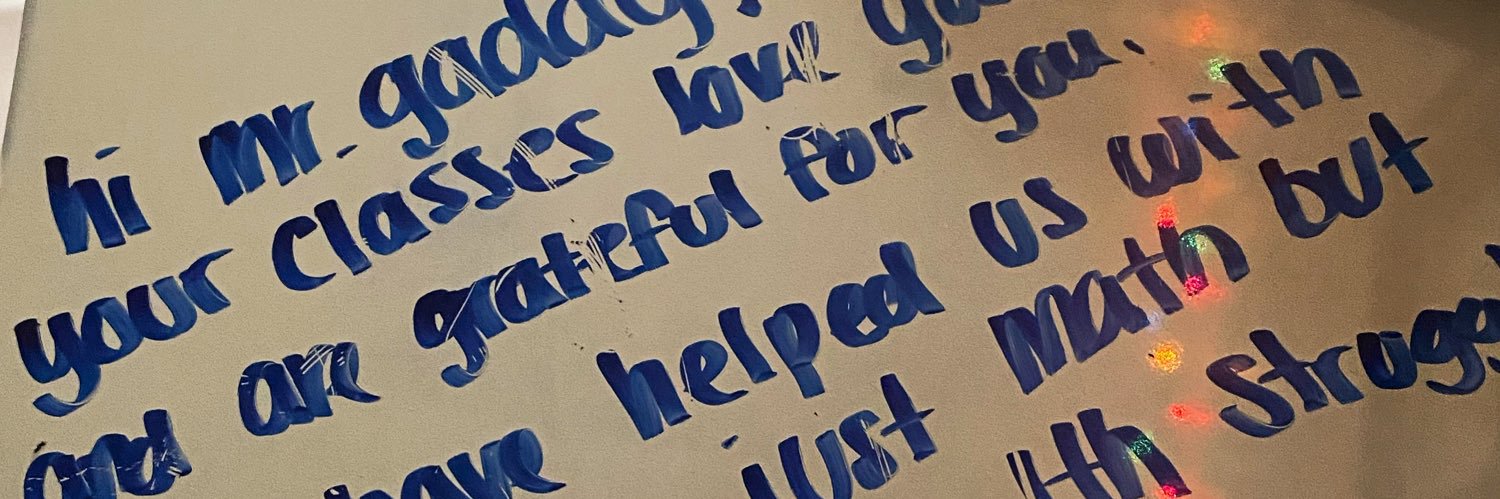 hi mr. gaddy
your classes love you
and are grateful for you.
have helped us with
just math but